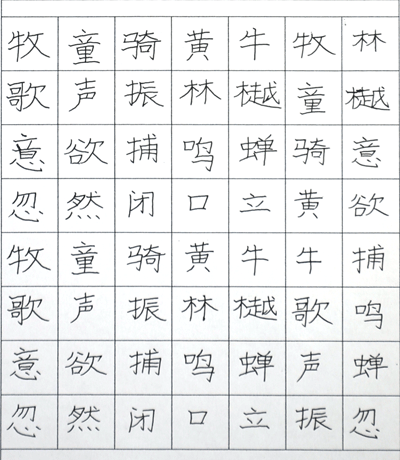 牧童骑黄牛牧林
歌声振林樾童樾
意欲捕鸣蝉骑意
忽然闭口立黄欲
牧童骑黄牛牛捕
歌声振林樾歌鸣
意欲捕鸣蝉声蝉
忽然闭口立振忽